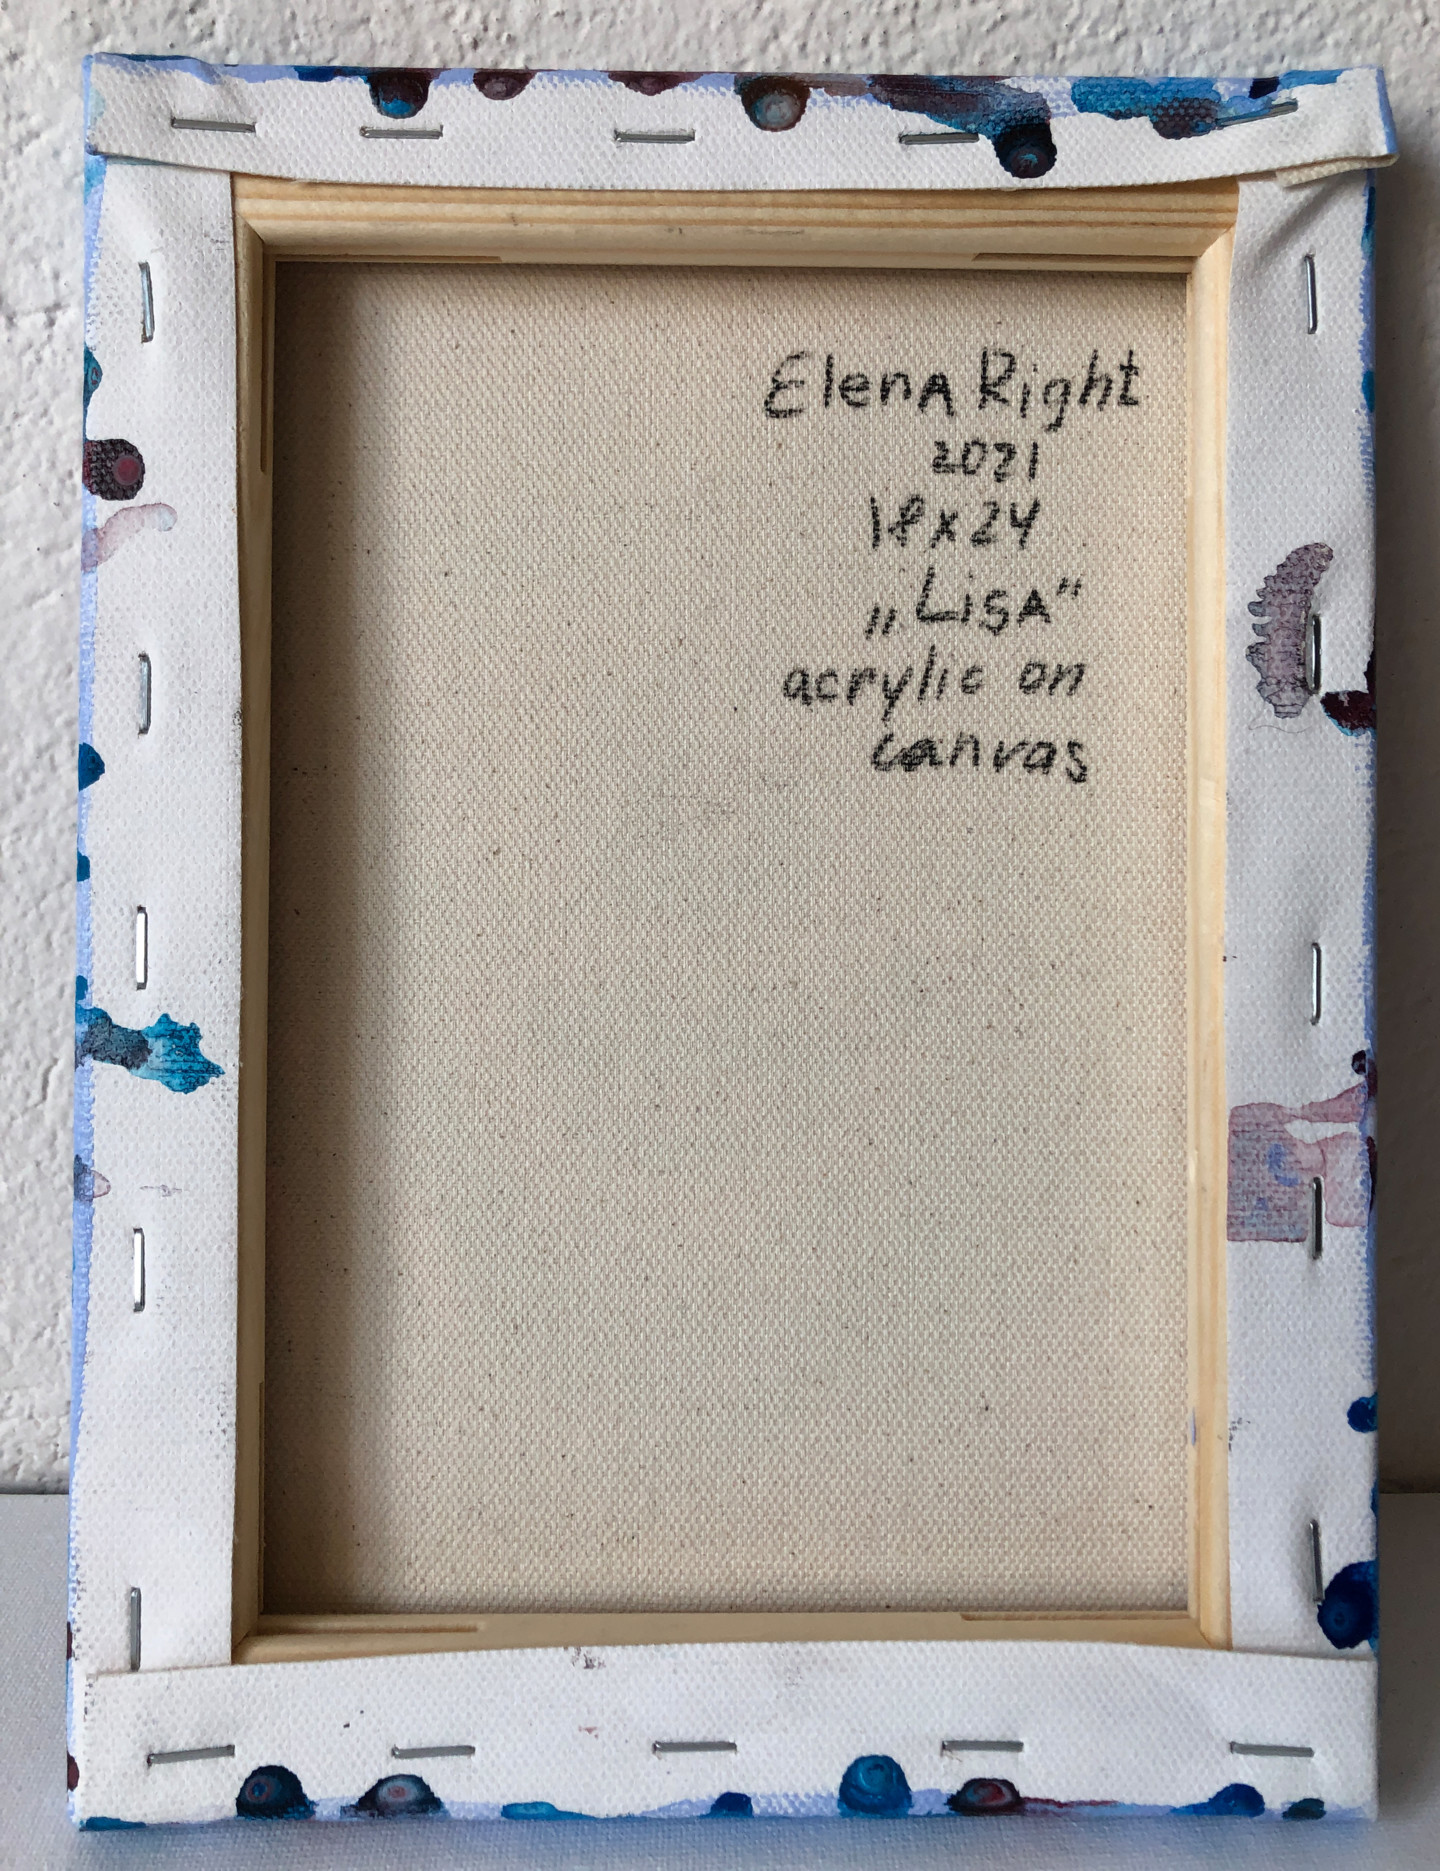 ElenA Right
2021
18x24
„LisA"
acrylic on
canvas